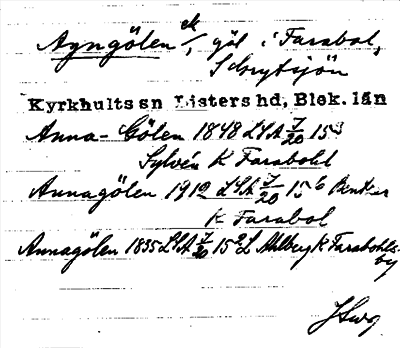 Agngölen ek/, göl i Farabol,
S Skrytsjön
Kyrkhults sn Listers hd, Blek. län
Anna-Gölen 1848 LSA 7/20 15
Sylvén K Farabohl
Annagölen 1910 LSA 7/20 15
K Farabol
Annagölen 1835 LSA 7/20 15 L Ahlberg K Farabohls-
by